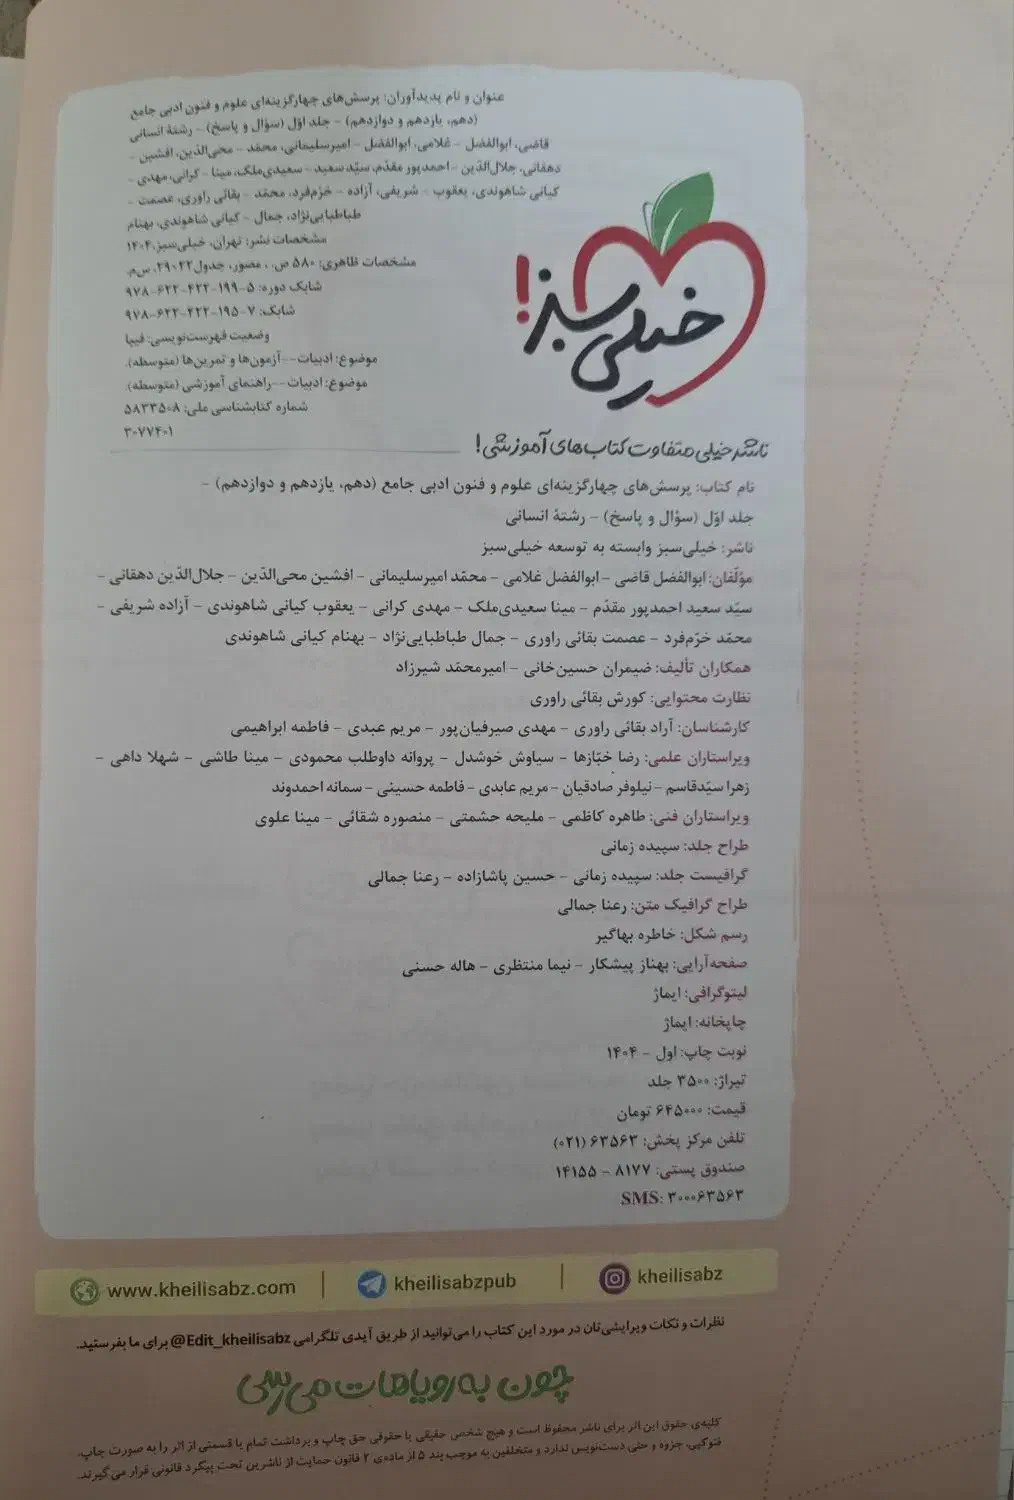 عنوان و نام پدیدآوران: پرسش‌های چهارگزینه‌ای علوم و فنون ادبی جامع
(دهم، یازدهم و دوازدهم) - جلد اوّل (سؤال و پاسخ) - رشتهٔ انسانی
قاضی، ابوالفضل - غلامی، ابوالفضل - امیرسلیمانی، محمّد - محی‌الدّین، افشین -
دهقانی، جلال‌الدّین - احمدپور مقدّم، سیّد سعید - سعیدی‌ملک، مینا - کرانی، مهدی -
کیانی شاهوندی، یعقوب - شریفی، آزاده - خرّم‌فرد، محمّد - بقائی راوری، عصمت -
طباطبایی‌نژاد، جمال - کیانی شاهوندی، بهنام
مشخصات نشر: تهران، خیلی‌سبز، ۱۴۰۴
مشخصات ظاهری: ۵۸۰ ص. ، مصور، جدول ۲۲×۲۹ س‌م.
شابک دوره: ۵-۱۹۹-۴۲۲-۶۲۲-۹۷۸
شابک: ۷-۱۹۵-۴۲۲-۶۲۲-۹۷۸
وضعیت فهرست‌نویسی: فیپا
موضوع: ادبیات--آزمون‌ها و تمرین‌ها (متوسطه).
موضوع: ادبیات--راهنمای آموزشی (متوسطه).
شماره کتابشناسی ملی: ۵۸۳۳۵۰۸
۳۰۷۷۴۰۱
خیلی سبز!
ناشر خیلی متفاوت کتاب‌های آموزشی!
نام کتاب: پرسش‌های چهارگزینه‌ای علوم و فنون ادبی جامع (دهم، یازدهم و دوازدهم) -
جلد اوّل (سؤال و پاسخ) - رشتهٔ انسانی
ناشر: خیلی‌سبز وابسته به توسعه خیلی‌سبز
مؤلّفان: ابوالفضل قاضی - ابوالفضل غلامی - محمّد امیرسلیمانی - افشین محی‌الدّین - جلال‌الدّین دهقانی -
سیّد سعید احمدپور مقدّم - مینا سعیدی‌ملک - مهدی کرانی - یعقوب کیانی شاهوندی - آزاده شریفی -
محمّد خرّم‌فرد - عصمت بقائی راوری - جمال طباطبایی‌نژاد - بهنام کیانی شاهوندی
همکاران تألیف: ضیمران حسین‌خانی - امیرمحمّد شیرزاد
نظارت محتوایی: کورش بقائی راوری
کارشناسان: آراد بقائی راوری - مهدی صیرفیان‌پور - مریم عبدی - فاطمه ابراهیمی
ویراستاران علمی: رضا خبّازها - سیاوش خوشدل - پروانه داوطلب محمودی - مینا طاشی - شهلا داهی -
زهرا سیّدقاسم - نیلوفر صادقیان - مریم عابدی - فاطمه حسینی - سمانه احمدوند
ویراستاران فنی: طاهره کاظمی - ملیحه حشمتی - منصوره شقائی - مینا علوی
طراح جلد: سپیده زمانی
گرافیست جلد: سپیده زمانی - حسین پاشازاده - رعنا جمالی
طراح گرافیک متن: رعنا جمالی
رسم شکل: خاطره بهاگیر
صفحه‌آرایی: بهناز پیشکار - نیما منتظری - هاله حسنی
لیتوگرافی: ایماژ
چاپخانه: ایماژ
نوبت چاپ: اول - ۱۴۰۴
تیراژ: ۳۵۰۰ جلد
قیمت: ۶۴۵۰۰۰ تومان
تلفن مرکز پخش: ۶۳۵۶۳ (۰۲۱)
صندوق پستی: ۸۱۷۷ - ۱۴۱۵۵
SMS: ۳۰۰۰۶۳۵۶۳
www.kheilisabz.com | kheilisabzpub | kheilisabz
نظرات و نکات ویرایشی‌تان در مورد این کتاب را می‌توانید از طریق آیدی تلگرامی @Edit_kheilisabz برای ما بفرستید.
چون به رویاهات می‌رسی
کلیه‌ی حقوق این اثر برای ناشر محفوظ است و هیچ شخص حقیقی یا حقوقی حق چاپ و برداشت تمام یا قسمتی از اثر را به صورت چاپ،
فتوکپی، جزوه و حتی دست‌نویس ندارد و متخلفین به موجب بند ۵ از ماده‌ی ۲ قانون حمایت از ناشرین تحت پیگرد قانونی قرار می‌گیرند.